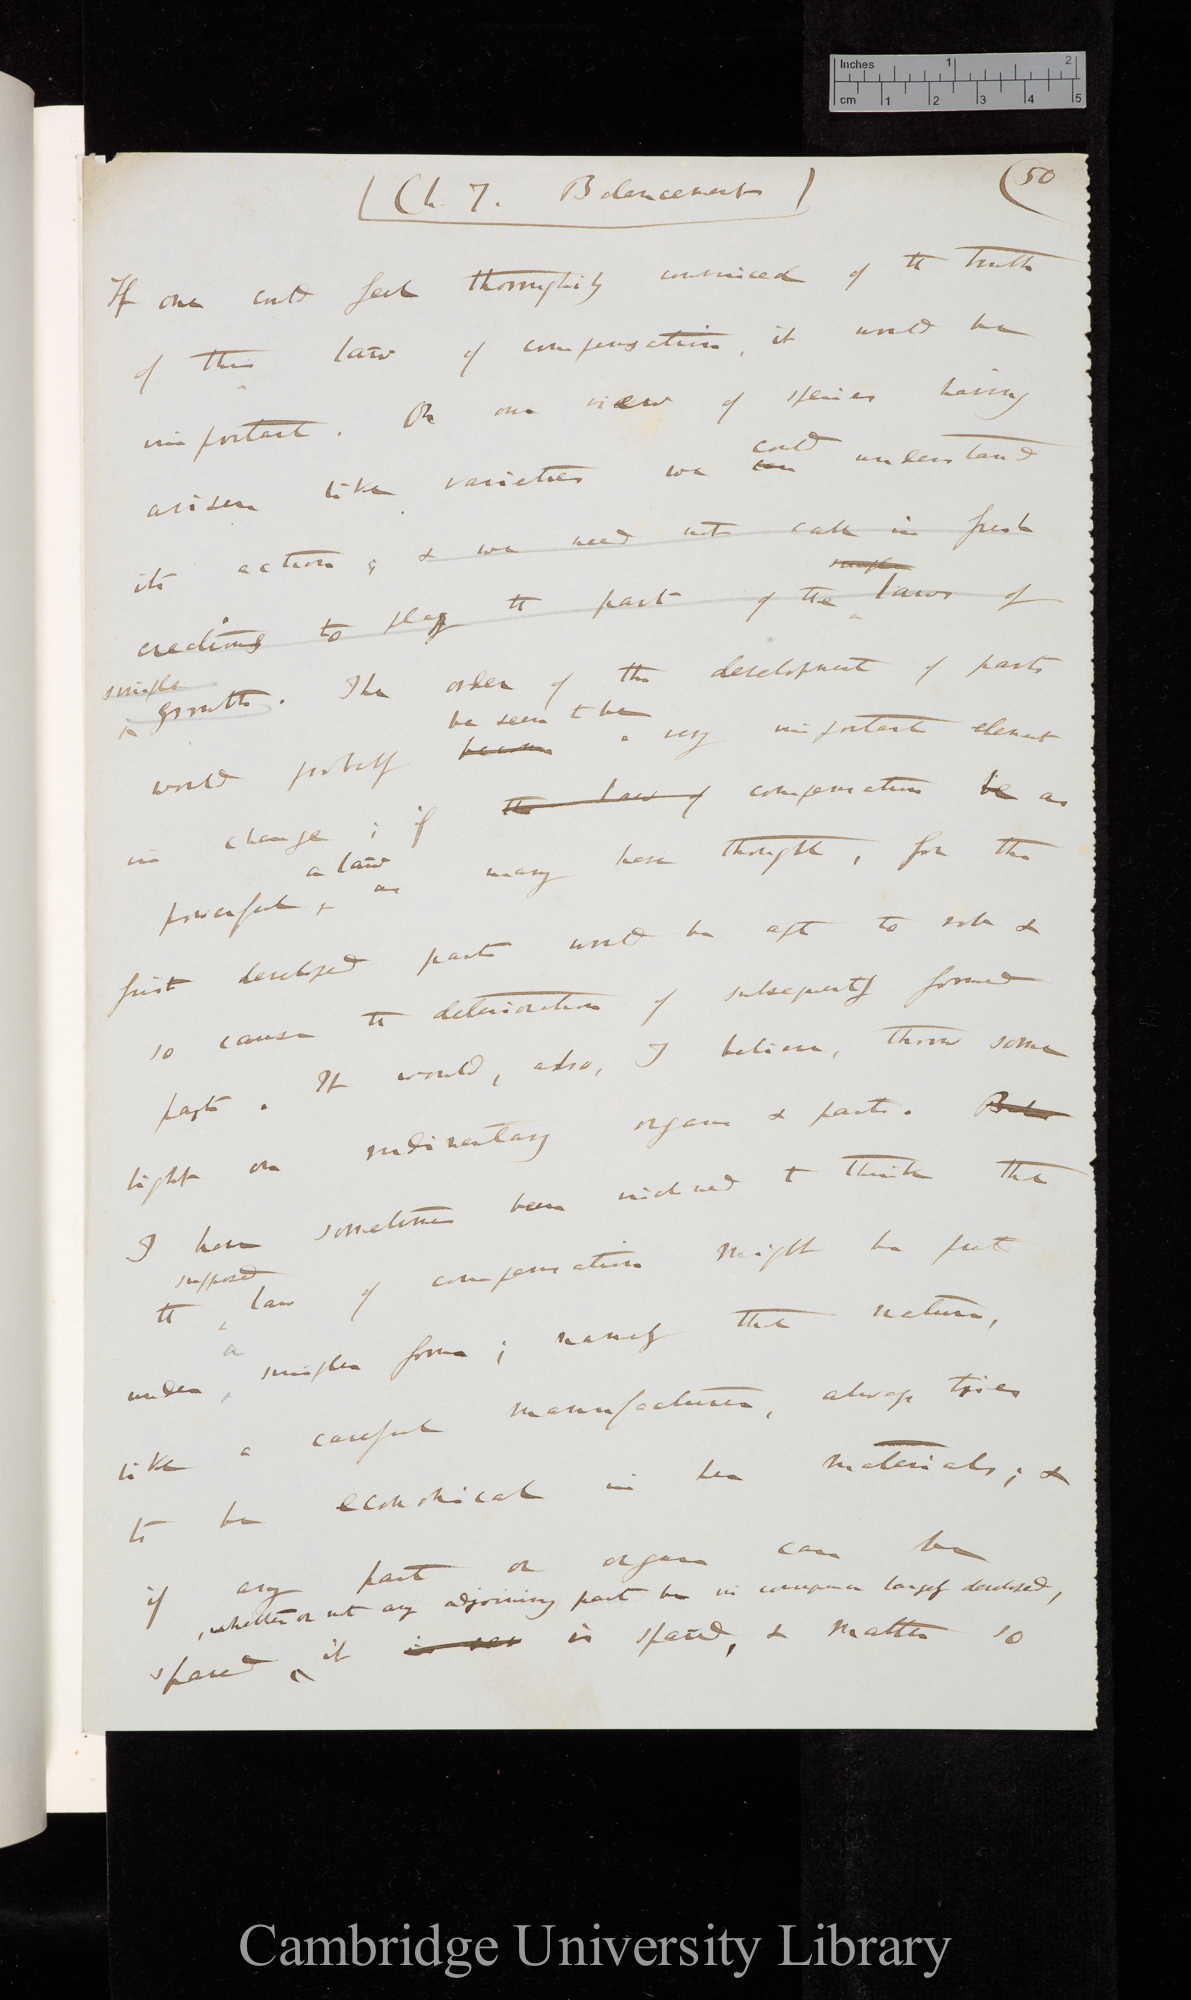 Inches 1 2
cm 1 2 3 4 5
(Ch. 7. Balancement)
(50
If one could feel thoroughily convinced of the truth
of this law of compensation, it would be
important. On our view of species having
could
arisen like varieties we can understand
its action; & we need not call in fresh
simple
creations to play the part of the laws of
simple
growth. The order of the development of parts
be seen to be
would probably become a very important element
in change; if the law of compensation be as
a law
powerful, as many have thought, for the
first developed parts would be apt to rob &
so cause the deterioration of subsequently formed
parts. It would, also, I believe, throw some
light on rudimentary organs & parts. But
I have sometimes been inclined to think that
supposed
the law of compensation might be put
a
under simpler form; namely that nature,
like a careful manufacturer, always tries
to be economical in her materials; &
if any part or organ can be
, whether or not any adjoining part be in consequence largely developed,
spared it is sav is spared, & matter so
Cambridge University Library